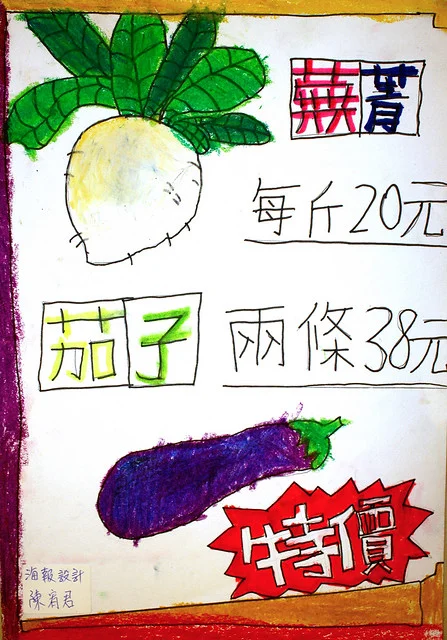 蕪菁
每斤20元
茄子
兩條38元
特價
海報設計
陳宥君